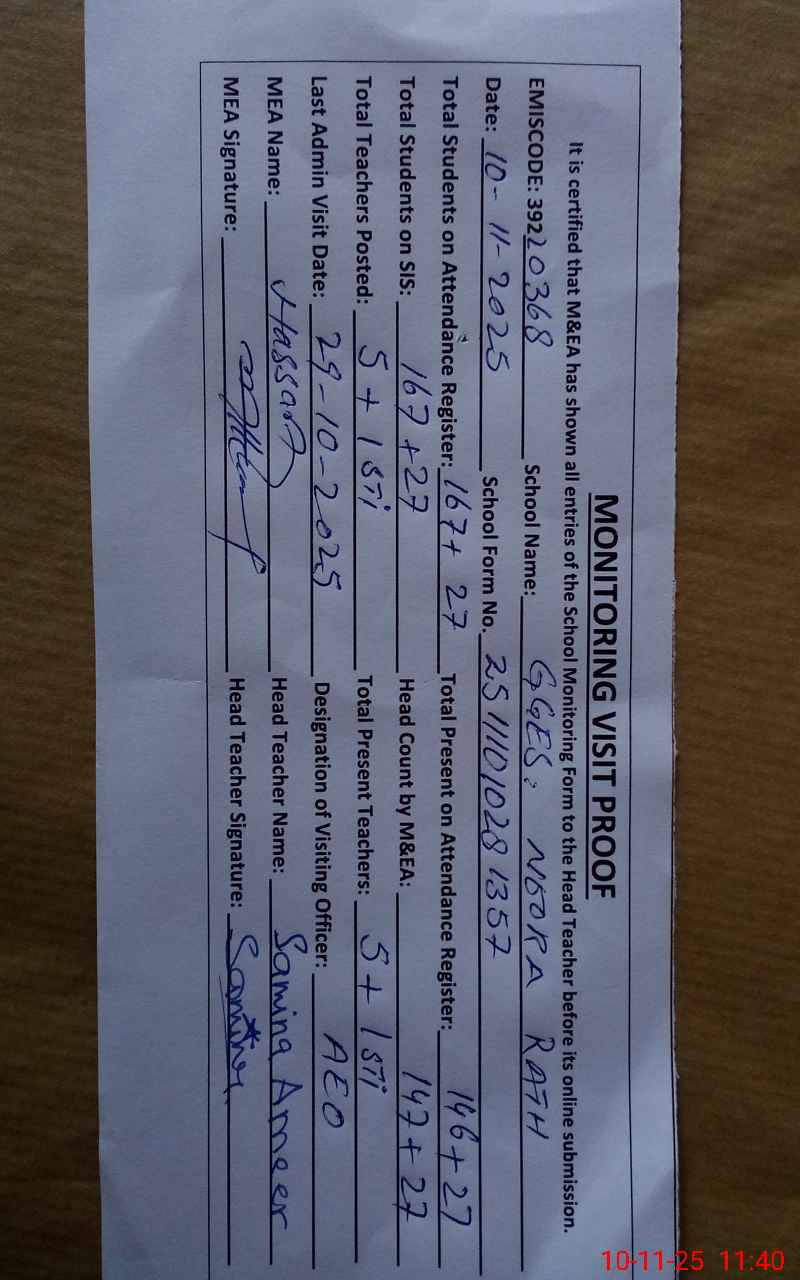 MONITORING VISIT PROOF
It is certified that M&EA has shown all entries of the School Monitoring Form to the Head Teacher before its online submission.
EMISCODE: 39220368 School Name: GGES. NEORA RATH
Date: 10-11-2025 School Form No. 25111010281357
Total Students on Attendance Register: 167+27 Total Present on Attendance Register: 146+27
Total Students on SIS: 167+27 Head Count by M&EA: 147+27
Total Teachers Posted: 5+1 STi Total Present Teachers: 5+1 STi
Last Admin Visit Date: 29-10-2025 Designation of Visiting Officer: AEO
MEA Name: Hassan Head Teacher Name: Samina Ameer
MEA Signature: Head Teacher Signature: Samina
10-11-25 11:40